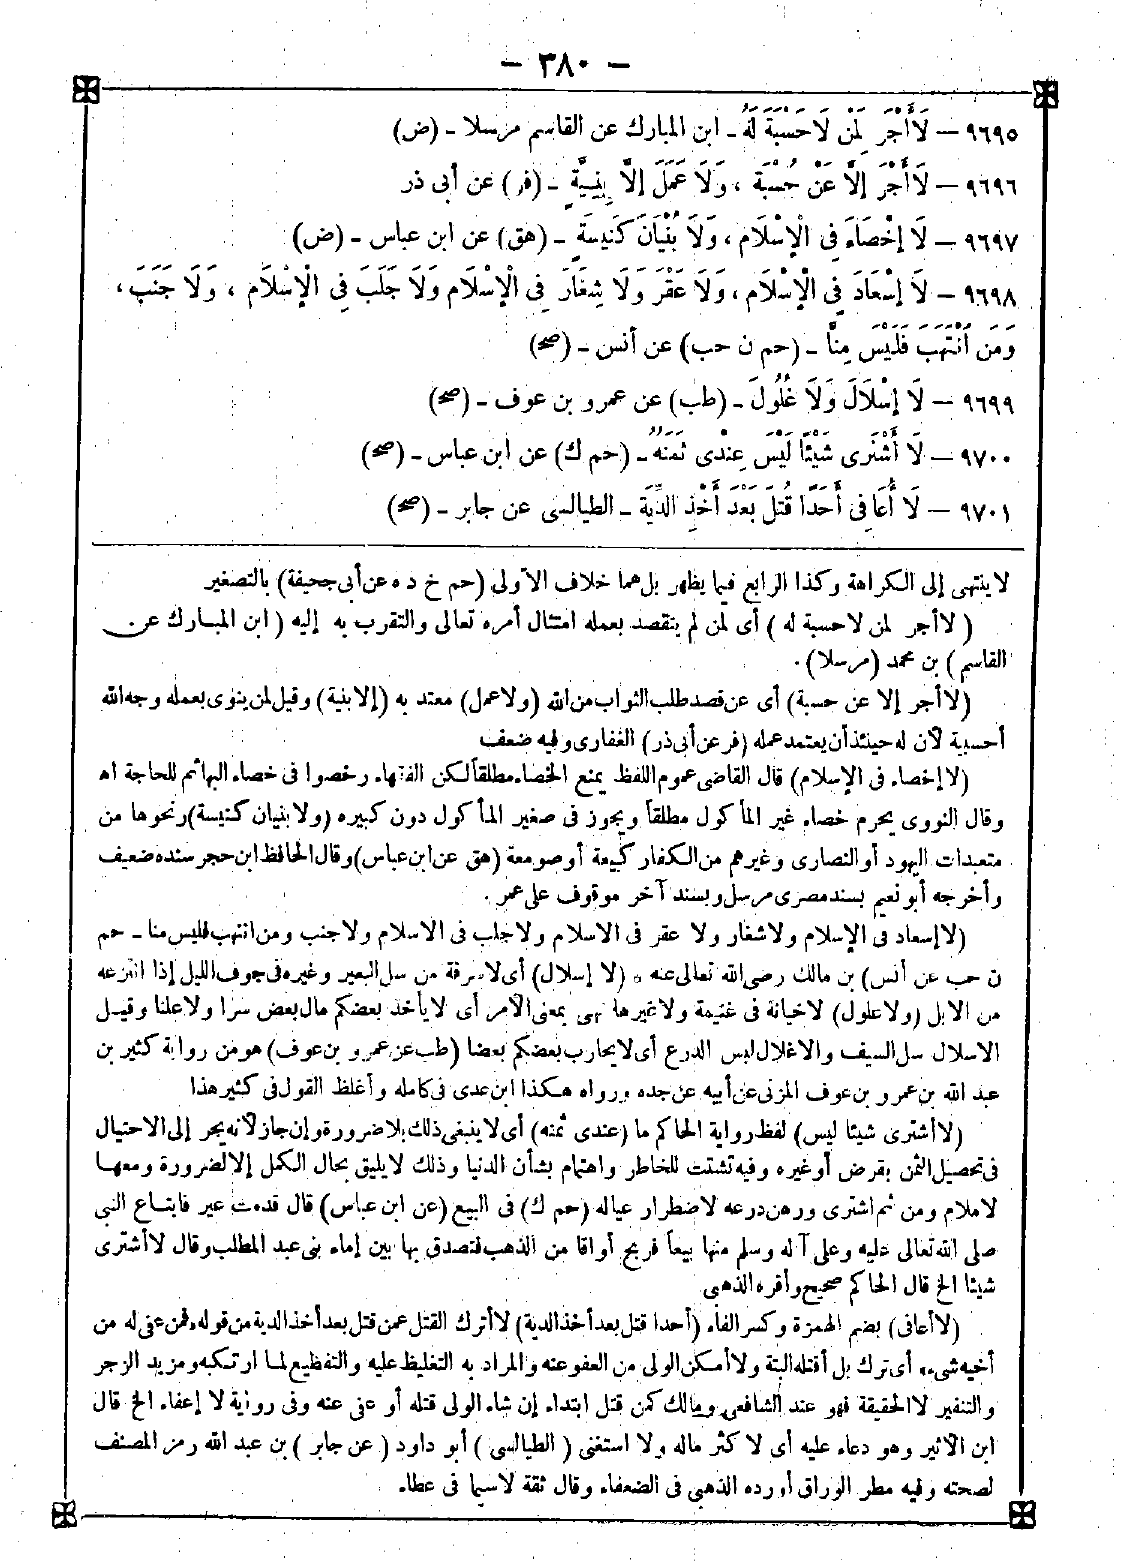 - ٣٨٠ -
٩٦٩٥ - لَا أَجْرَ لِمَنْ لَا حَسْبَةَ لَهُ - ابن المبارك عن القاسم مرسلا - (ض)
٩٦٩٦ - لَا أَجْرَ إِلَّا عَنْ حُسْبَةٍ ، وَلَا عَمَلَ إِلَّا بِنِيَّةٍ - (فر) عن أبى ذر
٩٦٩٧ - لَا إِخْصَاءَ فِى الْإِسْلَامِ ، وَلَا بُنْيَانَ كَنِيسَةٍ - (هق) عن ابن عباس - (ض)
٩٦٩٨ - لَا إِسْعَادَ فِى الْإِسْلَامِ ، وَلَا عَقْرَ وَلَا شِغَارَ فِى الْإِسْلَامِ وَلَا جَلَبَ فِى الْإِسْلَامِ ، وَلَا جَنَبَ ،
وَمَنِ انْتَهَبَ فَلَيْسَ مِنَّا - (حم ن حب) عن أنس - (صح)
٩٦٩٩ - لَا إِسْلَالَ وَلَا غُلُولَ - (طب) عن عمرو بن عوف - (صح)
٩٧٠٠ - لَا أَشْتَرِى شَيْئًا لَيْسَ عِنْدِى ثَمَنُهُ - (حم ك) عن ابن عباس - (صح)
٩٧٠١ - لَا أُعَافِى أَحَدًا قُتِلَ بَعْدَ أَخْذِ الدِّيَةِ - الطيالسى عن جابر - (صح)
لا ينتهى إلى الكراهة وكذا الرابع فيما يظهر بل هما خلاف الأولى (حم خ د ه عن أبى جحيفة) بالتصغير
( لا أجر لمن لا حسبة له ) أى لمن لم يتقصد بعمله امتثال أمره تعالى والتقرب به إليه ( ابن المبارك عن
القاسم ) بن محمد (مرسلا) .
(لا أجر إلا عن حسبة) أى عن قصد طلب الثواب من الله (ولا عمل) معتد به (إلا بنية) وقيل لمن ينوى بعمله وجه الله
أحسبة لأن له حينئذ أن يعتمد عمله (فر عن أبى ذر) الغفارى وفيه ضعف
(لا إخصاء فى الإسلام) قال القاضى عموم اللفظ يمنع الخصاء مطلقاً لكن الفقهاء رخصوا فى خصاء البهائم للحاجة اه
وقال النووى يحرم خصاء غير المأكول مطلقاً ويجوز فى صغير المأكول دون كبيره (ولا بنيان كنيسة) ونحوها من
متعبدات اليهود أو النصارى وغيرهم من الكفار كبيعة أو صومعة (هق عن ابن عباس) وقال الحافظ ابن حجر سنده ضعيف
وأخرجه أبو نعيم بسند مصرى مرسل وبسند آخر موقوف على عمر .
(لا إسعاد فى الإسلام ولا شغار ولا عقر فى الاسلام ولا جلب فى الاسلام ولا جنب ومن انتهب فليس منا - حم
ن حب عن أنس) بن مالك رضى الله تعالى عنه ، (لا إسلال) أى لا سرقة من سل البعير وغيره فى جوف الليل إذا انتزعه
من الابل (ولا غلول) لا خيانة فى غنيمة ولا غيرها نهى بمعنى الأمر أى لا يأخذ بعضكم مال بعض سرا ولا علنا وقيل
الاسلال سل السيف والاغلال لبس الدرع أى لا يحارب بعضكم بعضا (طب عن عمرو بن عوف) هو من رواية كثير بن
عبد الله بن عمرو بن عوف المزنى عن أبيه عن جده ورواه هكذا ابن عدى فى كامله وأغلظ القول فى كثير هذا
(لا أشترى شيئا ليس) لفظ رواية الحاكم ما (عندى ثمنه) أى لا ينبغى ذلك بلا ضرورة وإن جاز لأنه يجر إلى الاحتيال
فى تحصيل الثمن بقرض أو غيره وفيه تشتت للخاطر واهتمام بشأن الدنيا وذلك لا يليق بحال الكمل إلا لضرورة ومعها
لا ملام ومن ثم اشترى ورهن درعه لاضطرار عياله (حم ك) فى البيع (عن ابن عباس) قال قدمت عير فابتاع النبى
صلى الله تعالى عليه وعلى آله وسلم منها بيعاً فربح أواقا من الذهب فتصدق بها بين إماء بنى عبد المطلب وقال لا أشترى
شيئا الخ قال الحاكم صحيح وأقره الذهبى
(لا أعافى) بضم الهمزة وكسر الفاء (أحدا قتل بعد أخذ الدية) لا أترك القتل عمن قتل بعد أخذ الدية من قوله، فمن عفى له من
أخيه شىء، أى ترك بل أقتله البتة ولا أمكن الولى من العفو عنه والمراد به التغليظ عليه والتفظيع لما ارتكبه ومزيد الزجر
والتنفير لا الحقيقة فهو عند الشافعى ومالك كمن قتل ابتداء إن شاء الولى قتله أو عفى عنه وفى رواية لا إعفاء الخ قال
ابن الأثير وهو دعاء عليه أى لا كثر ماله ولا استغنى ( الطيالسى ) أبو داود ( عن جابر ) بن عبد الله رمز المصنف
لصحته وفيه مطر الوراق أورده الذهبى فى الضعفاء وقال ثقة لا سيما فى عطاء